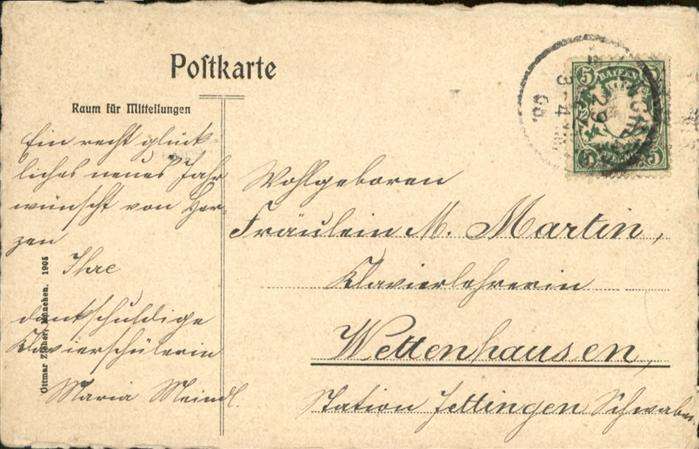 Postkarte
Raum für Mitteilungen
Ein recht glück-
liches neues Jahr
wünscht von Her-
zen
Ihre
dankschuldige
Klavierschülerin
Maria Meindl
Wohlgeboren
Fräulein M. Martin,
Klavierlehrerin
Wettenhausen,
Station Jettingen Schwaben
Ottmar Zieher, München. 1905
BAYERN
5 5
5 5
3-4